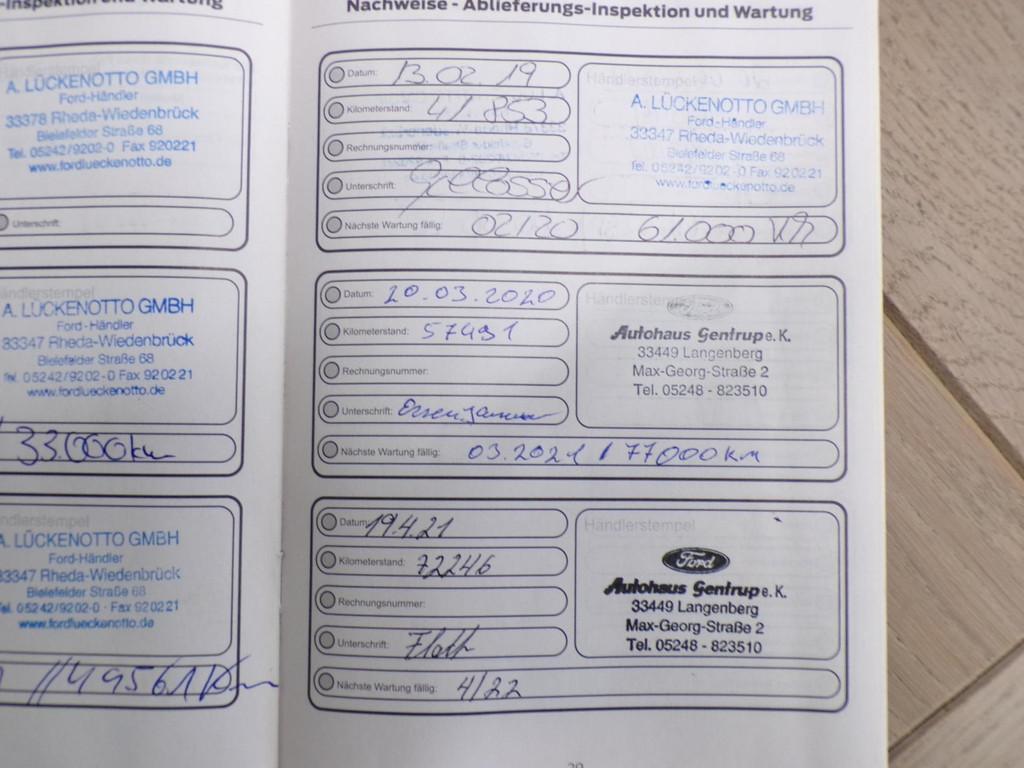 -Inspektion und Wartung
A. LÜCKENOTTO GMBH
Ford-Händler
33378 Rheda-Wiedenbrück
Bielefelder Straße 68
Tel. 05242/9202-0 Fax 920221
www.fordlueckenotto.de
Unterschrift:
Händlerstempel
A. LÜCKENOTTO GMBH
Ford-Händler
33347 Rheda-Wiedenbrück
Bielefelder Straße 68
Tel. 05242/9202-0 Fax 920221
www.fordlueckenotto.de
33.000km
Händlerstempel
A. LÜCKENOTTO GMBH
Ford-Händler
33347 Rheda-Wiedenbrück
Bielefelder Straße 68
Tel. 05242/9202-0 · Fax 920221
www.fordlueckenotto.de
49561 Km
Nachweise - Ablieferungs-Inspektion und Wartung
Datum: 13.02.19
Kilometerstand: 41.853
Rechnungsnummer:
Unterschrift:
Nächste Wartung fällig: 02/20 61.000 km
Händlerstempel
A. LÜCKENOTTO GMBH
Ford-Händler
33347 Rheda-Wiedenbrück
Bielefelder Straße 68
Tel. 05242/9202-0 Fax 920221
www.fordlueckenotto.de
Datum: 20.03.2020
Kilometerstand: 57491
Rechnungsnummer:
Unterschrift:
Nächste Wartung fällig: 03.2021 / 77000 km
Händlerstempel
Autohaus Gentrup e. K.
33449 Langenberg
Max-Georg-Straße 2
Tel. 05248 - 823510
Datum: 19.4.21
Kilometerstand: 72246
Rechnungsnummer:
Unterschrift:
Nächste Wartung fällig: 4/22
Händlerstempel
Ford
Autohaus Gentrup e. K.
33449 Langenberg
Max-Georg-Straße 2
Tel. 05248 - 823510